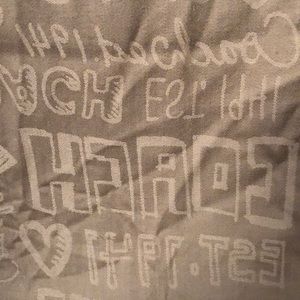 Coach est. 1941
ACH EST. 1941
COACH
EST. 1941